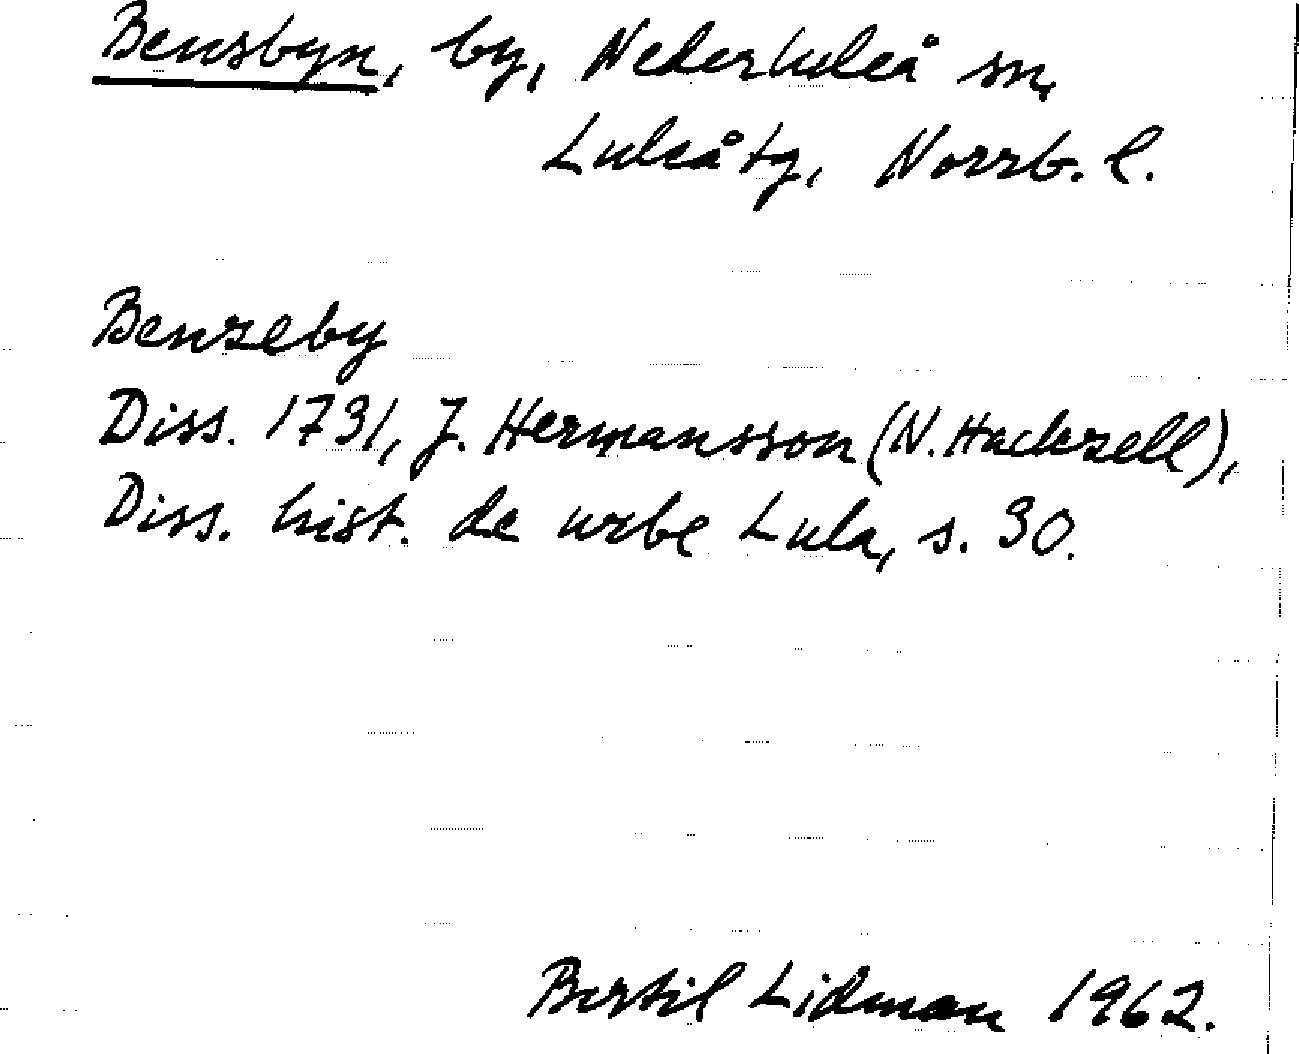 Bensbyn, by, Nederluleå sn,
Luleå tg, Norrb. l.
Benzeby
Diss. 1731, J. Hermansson (N. Hackzell),
Diss. hist. de urbe Lula, s. 30.
Bertil Lidman 1962.